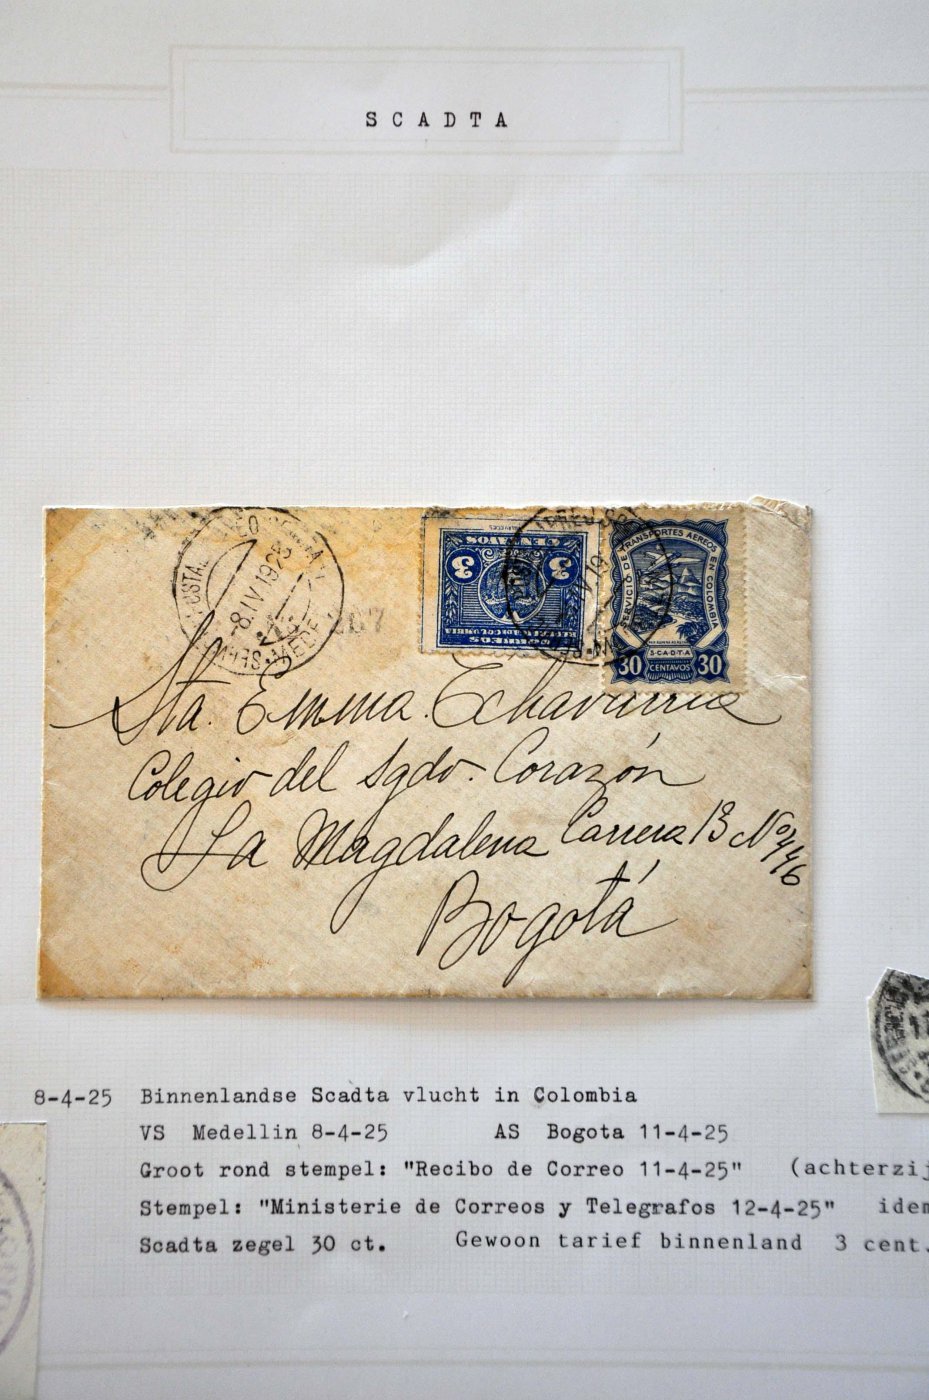 SCADTA
8 IV 1925
207
3 3
CENTAVOS
CORREOS
REPUBLICA DE COLOMBIA
SERVICIO DE TRANSPORTES AEREOS EN COLOMBIA
S·C·A·D·T·A
30 CENTAVOS 30
Sta. Emma Echavarria
Colegio del Sgdo. Corazón
La Magdalena Carrera 13 No 446
Bogotá
8-4-25 Binnenlandse Scadta vlucht in Colombia
VS Medellin 8-4-25 AS Bogota 11-4-25
Groot rond stempel: "Recibo de Correo 11-4-25" (achterzij
Stempel: "Ministerie de Correos y Telegrafos 12-4-25" idem
Scadta zegel 30 ct. Gewoon tarief binnenland 3 cent.